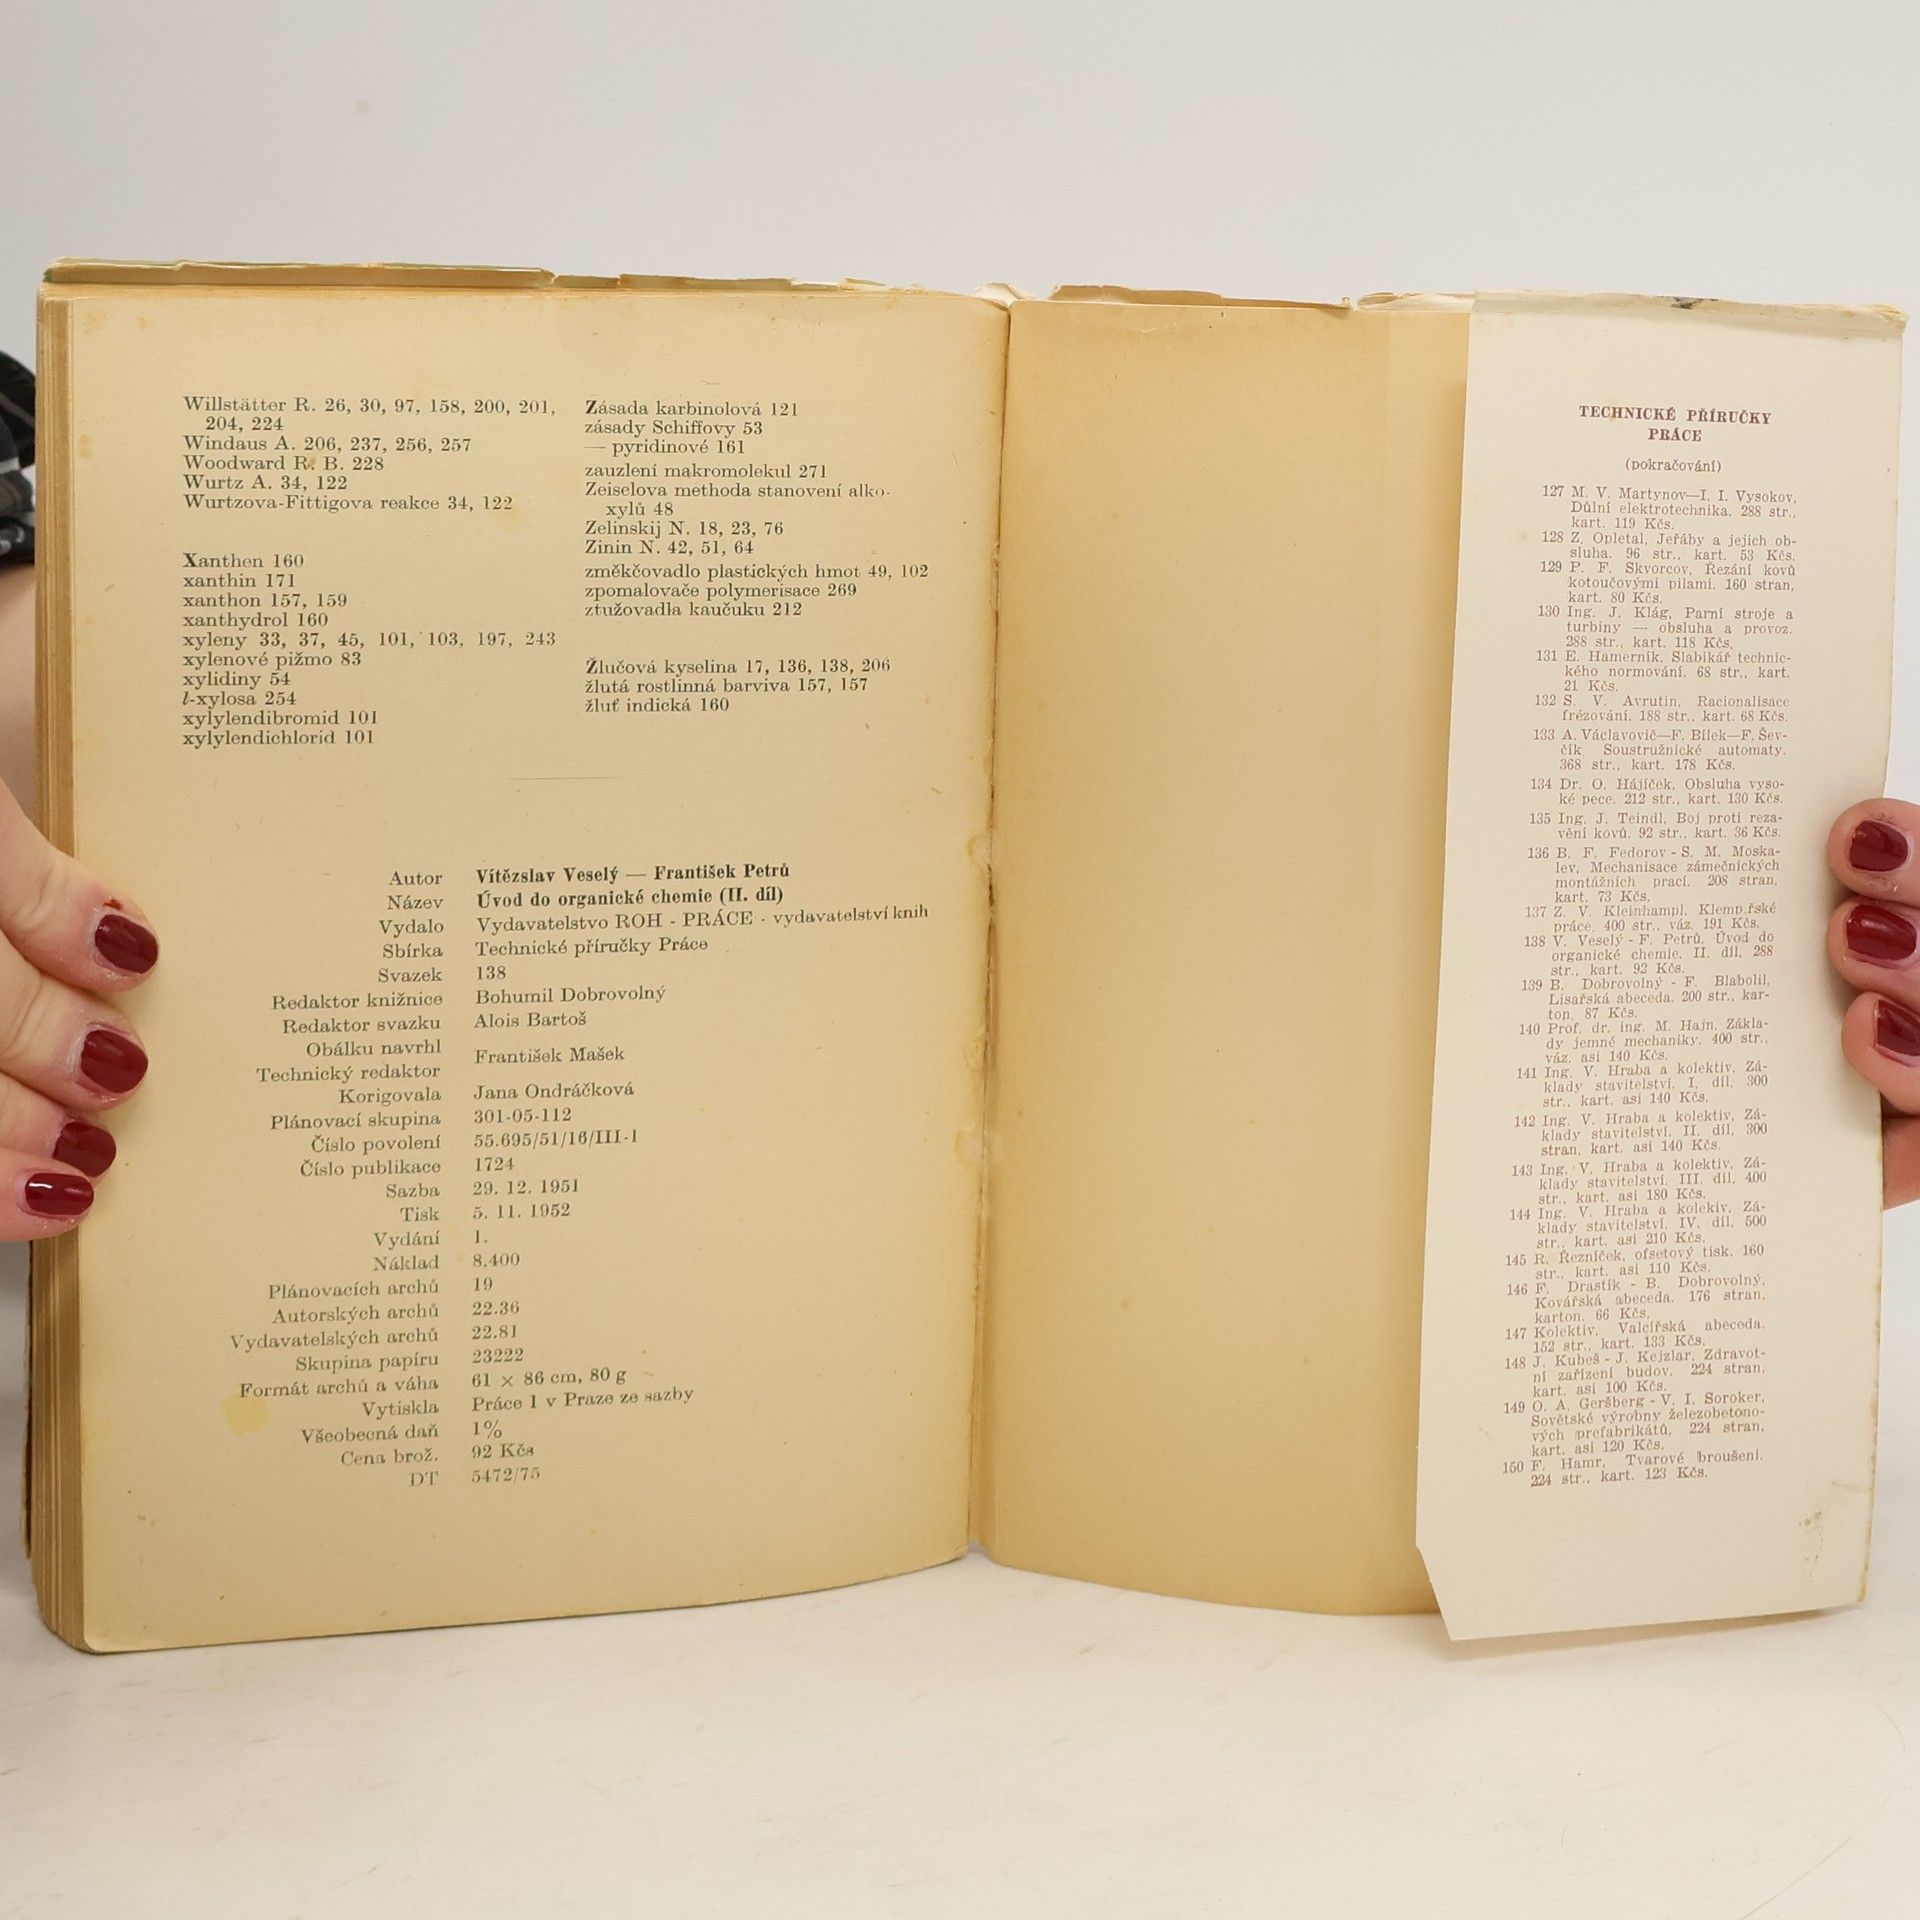 Willstätter R. 26, 30, 97, 158, 200, 201,
204, 224
Windaus A. 206, 237, 256, 257
Woodward R. B. 228
Wurtz A. 34, 122
Wurtzova-Fittigova reakce 34, 122
Xanthen 160
xanthin 171
xanthon 157, 159
xanthydrol 160
xyleny 33, 37, 45, 101, 103, 197, 243
xylenové pižmo 83
xylidiny 54
l-xylosa 254
xylylendibromid 101
xylylendichlorid 101
Zásada karbinolová 121
zásady Schiffovy 53
— pyridinové 161
zauzlení makromolekul 271
Zeiselova methoda stanovení alko-
xylů 48
Zelinskij N. 18, 23, 76
Zinin N. 42, 51, 64
změkčovadlo plastických hmot 49, 102
zpomalovače polymerisace 269
ztužovadla kaučuku 212
Žlučová kyselina 17, 136, 138, 206
žlutá rostlinná barviva 157, 157
žluť indická 160
Autor Vítězslav Veselý — František Petrů
Název Úvod do organické chemie (II. díl)
Vydalo Vydavatelstvo ROH - PRÁCE - vydavatelství knih
Sbírka Technické příručky Práce
Svazek 138
Redaktor knižnice Bohumil Dobrovolný
Redaktor svazku Alois Bartoš
Obálku navrhl
Technický redaktor František Mašek
Korigovala Jana Ondráčková
Plánovací skupina 301-05-112
Číslo povolení 55.695/51/16/III-1
Číslo publikace 1724
Sazba 29. 12. 1951
Tisk 5. 11. 1952
Vydání 1.
Náklad 8.400
Plánovacích archů 19
Autorských archů 22.36
Vydavatelských archů 22.81
Skupina papíru 23222
Formát archů a váha 61 × 86 cm, 80 g
Vytiskla Práce 1 v Praze ze sazby
Všeobecná daň 1%
Cena brož. 92 Kčs
DT 5472/75
TECHNICKÉ PŘÍRUČKY
PRÁCE
(pokračování)
127 M. V. Martynov—I. I. Vysokov,
Důlní elektrotechnika. 288 str.,
kart. 119 Kčs.
128 Z. Opletal, Jeřáby a jejich ob-
sluha. 96 str., kart. 53 Kčs.
129 P. F. Skvorcov, Řezání kovů
kotoučovými pilami. 160 stran,
kart. 80 Kčs.
130 Ing. J. Klág, Parní stroje a
turbiny — obsluha a provoz.
288 str., kart. 118 Kčs.
131 E. Hamerník, Slabikář technic-
kého normování. 68 str., kart.
21 Kčs.
132 S. V. Avrutin, Racionalisace
frézování. 188 str., kart. 68 Kčs.
133 A. Václavovič—F. Bílek—F. Šev-
čík, Soustružnické automaty.
368 str., kart. 178 Kčs.
134 Dr. O. Hájíček, Obsluha vyso-
ké pece. 212 str., kart. 130 Kčs.
135 Ing. J. Teindl, Boj proti reza-
vění kovů. 92 str., kart. 36 Kčs.
136 B. F. Fedorov - S. M. Moska-
lev, Mechanisace zámečnických
montážních prací. 208 stran,
kart. 73 Kčs.
137 Z. V. Kleinhampl, Klempířské
práce. 400 str., váz. 191 Kčs.
138 V. Veselý - F. Petrů, Úvod do
organické chemie. II. díl, 288
str., kart. 92 Kčs.
139 B. Dobrovolný - F. Blabolil,
Lisařská abeceda. 200 str., kar-
ton. 87 Kčs.
140 Prof. dr. ing. M. Hajn, Zákla-
dy jemné mechaniky. 400 str.,
váz. asi 140 Kčs.
141 Ing. V. Hraba a kolektiv, Zá-
klady stavitelství. I. díl. 300
str., kart. asi 140 Kčs.
142 Ing. V. Hraba a kolektiv, Zá-
klady stavitelství. II. díl, 300
stran, kart. asi 140 Kčs.
143 Ing. V. Hraba a kolektiv, Zá-
klady stavitelství. III. díl, 400
str., kart. asi 180 Kčs.
144 Ing. V. Hraba a kolekiv, Zá-
klady stavitelství. IV. díl, 500
str., kart. asi 210 Kčs.
145 R. Řezníček, ofsetový tisk. 160
str., kart. asi 110 Kčs.
146 F. Drastík - B. Dobrovolný,
Kovářská abeceda. 176 stran,
karton. 66 Kčs.
147 Kolektiv, Valcířská abeceda.
152 str., kart. 133 Kčs.
148 J. Kubeš - J. Kejzlar, Zdravot-
ní zařízení budov. 224 stran,
kart. asi 100 Kčs.
149 O. A. Geršberg - V. I. Soroker,
Sovětské výrobny železobetono-
vých prefabrikátů, 224 stran,
kart. asi 120 Kčs.
150 F. Hamr, Tvarové broušení.
224 str., kart. 123 Kčs.